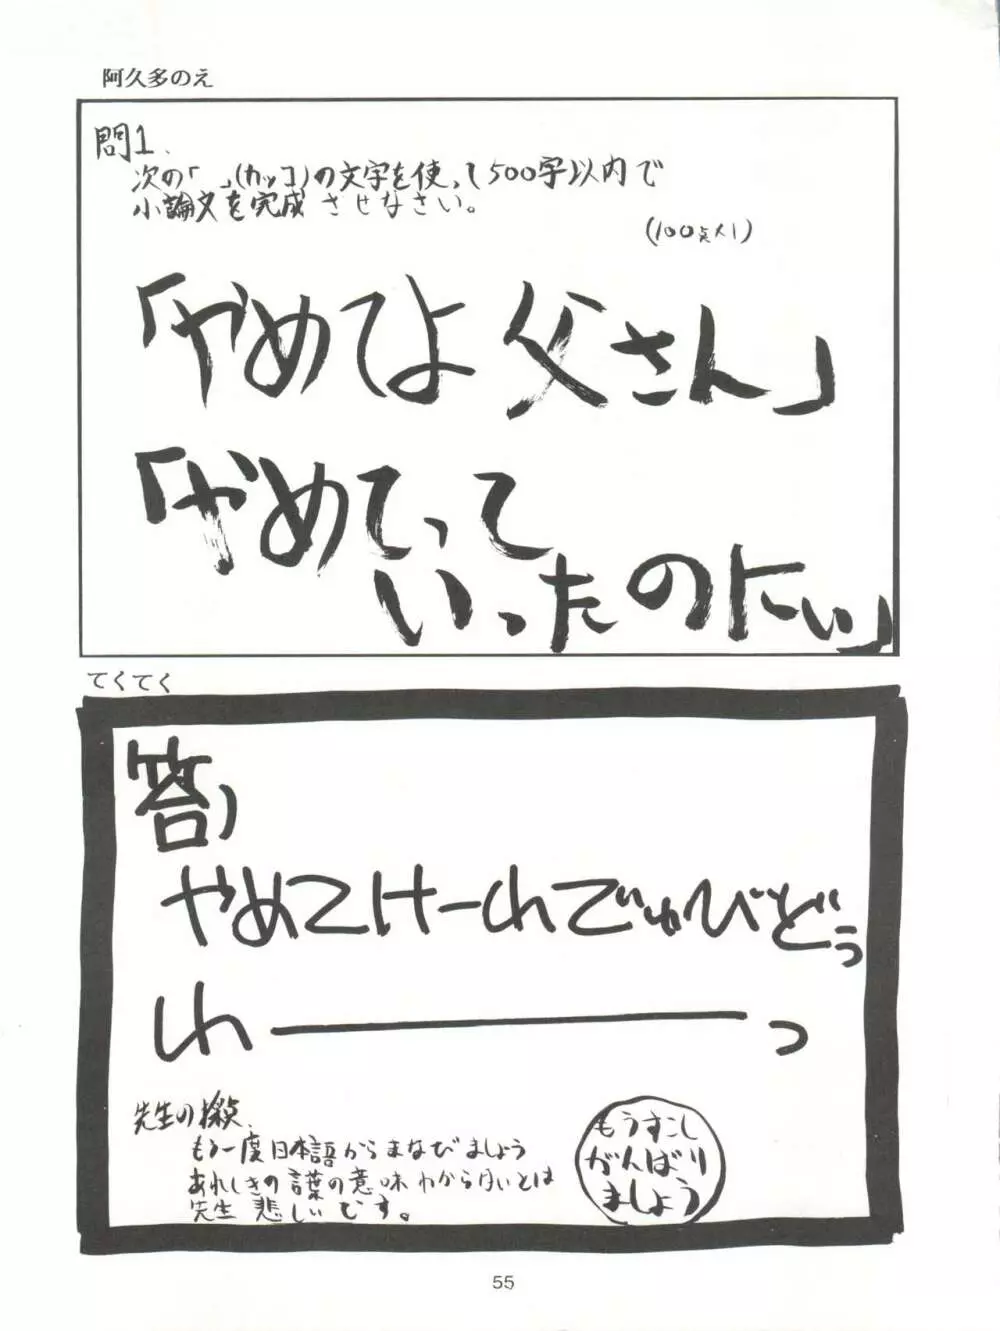 阿久多のえ
問1.
次の「　」(カッコ)の文字を使って500字以内で
小論文を完成させなさい。
(100点人)
「やめてよ父さん」
「やめてって
いったのにぃ」
てくてく
答)
やめてけーれでぃゅびどぅ
れ――っ
先生の採点.
もう一度日本語からまなびましょう
あれしきの言葉の意味わからないとは
先生悲しいです。
もうすこし
がんばり
ましょう
55